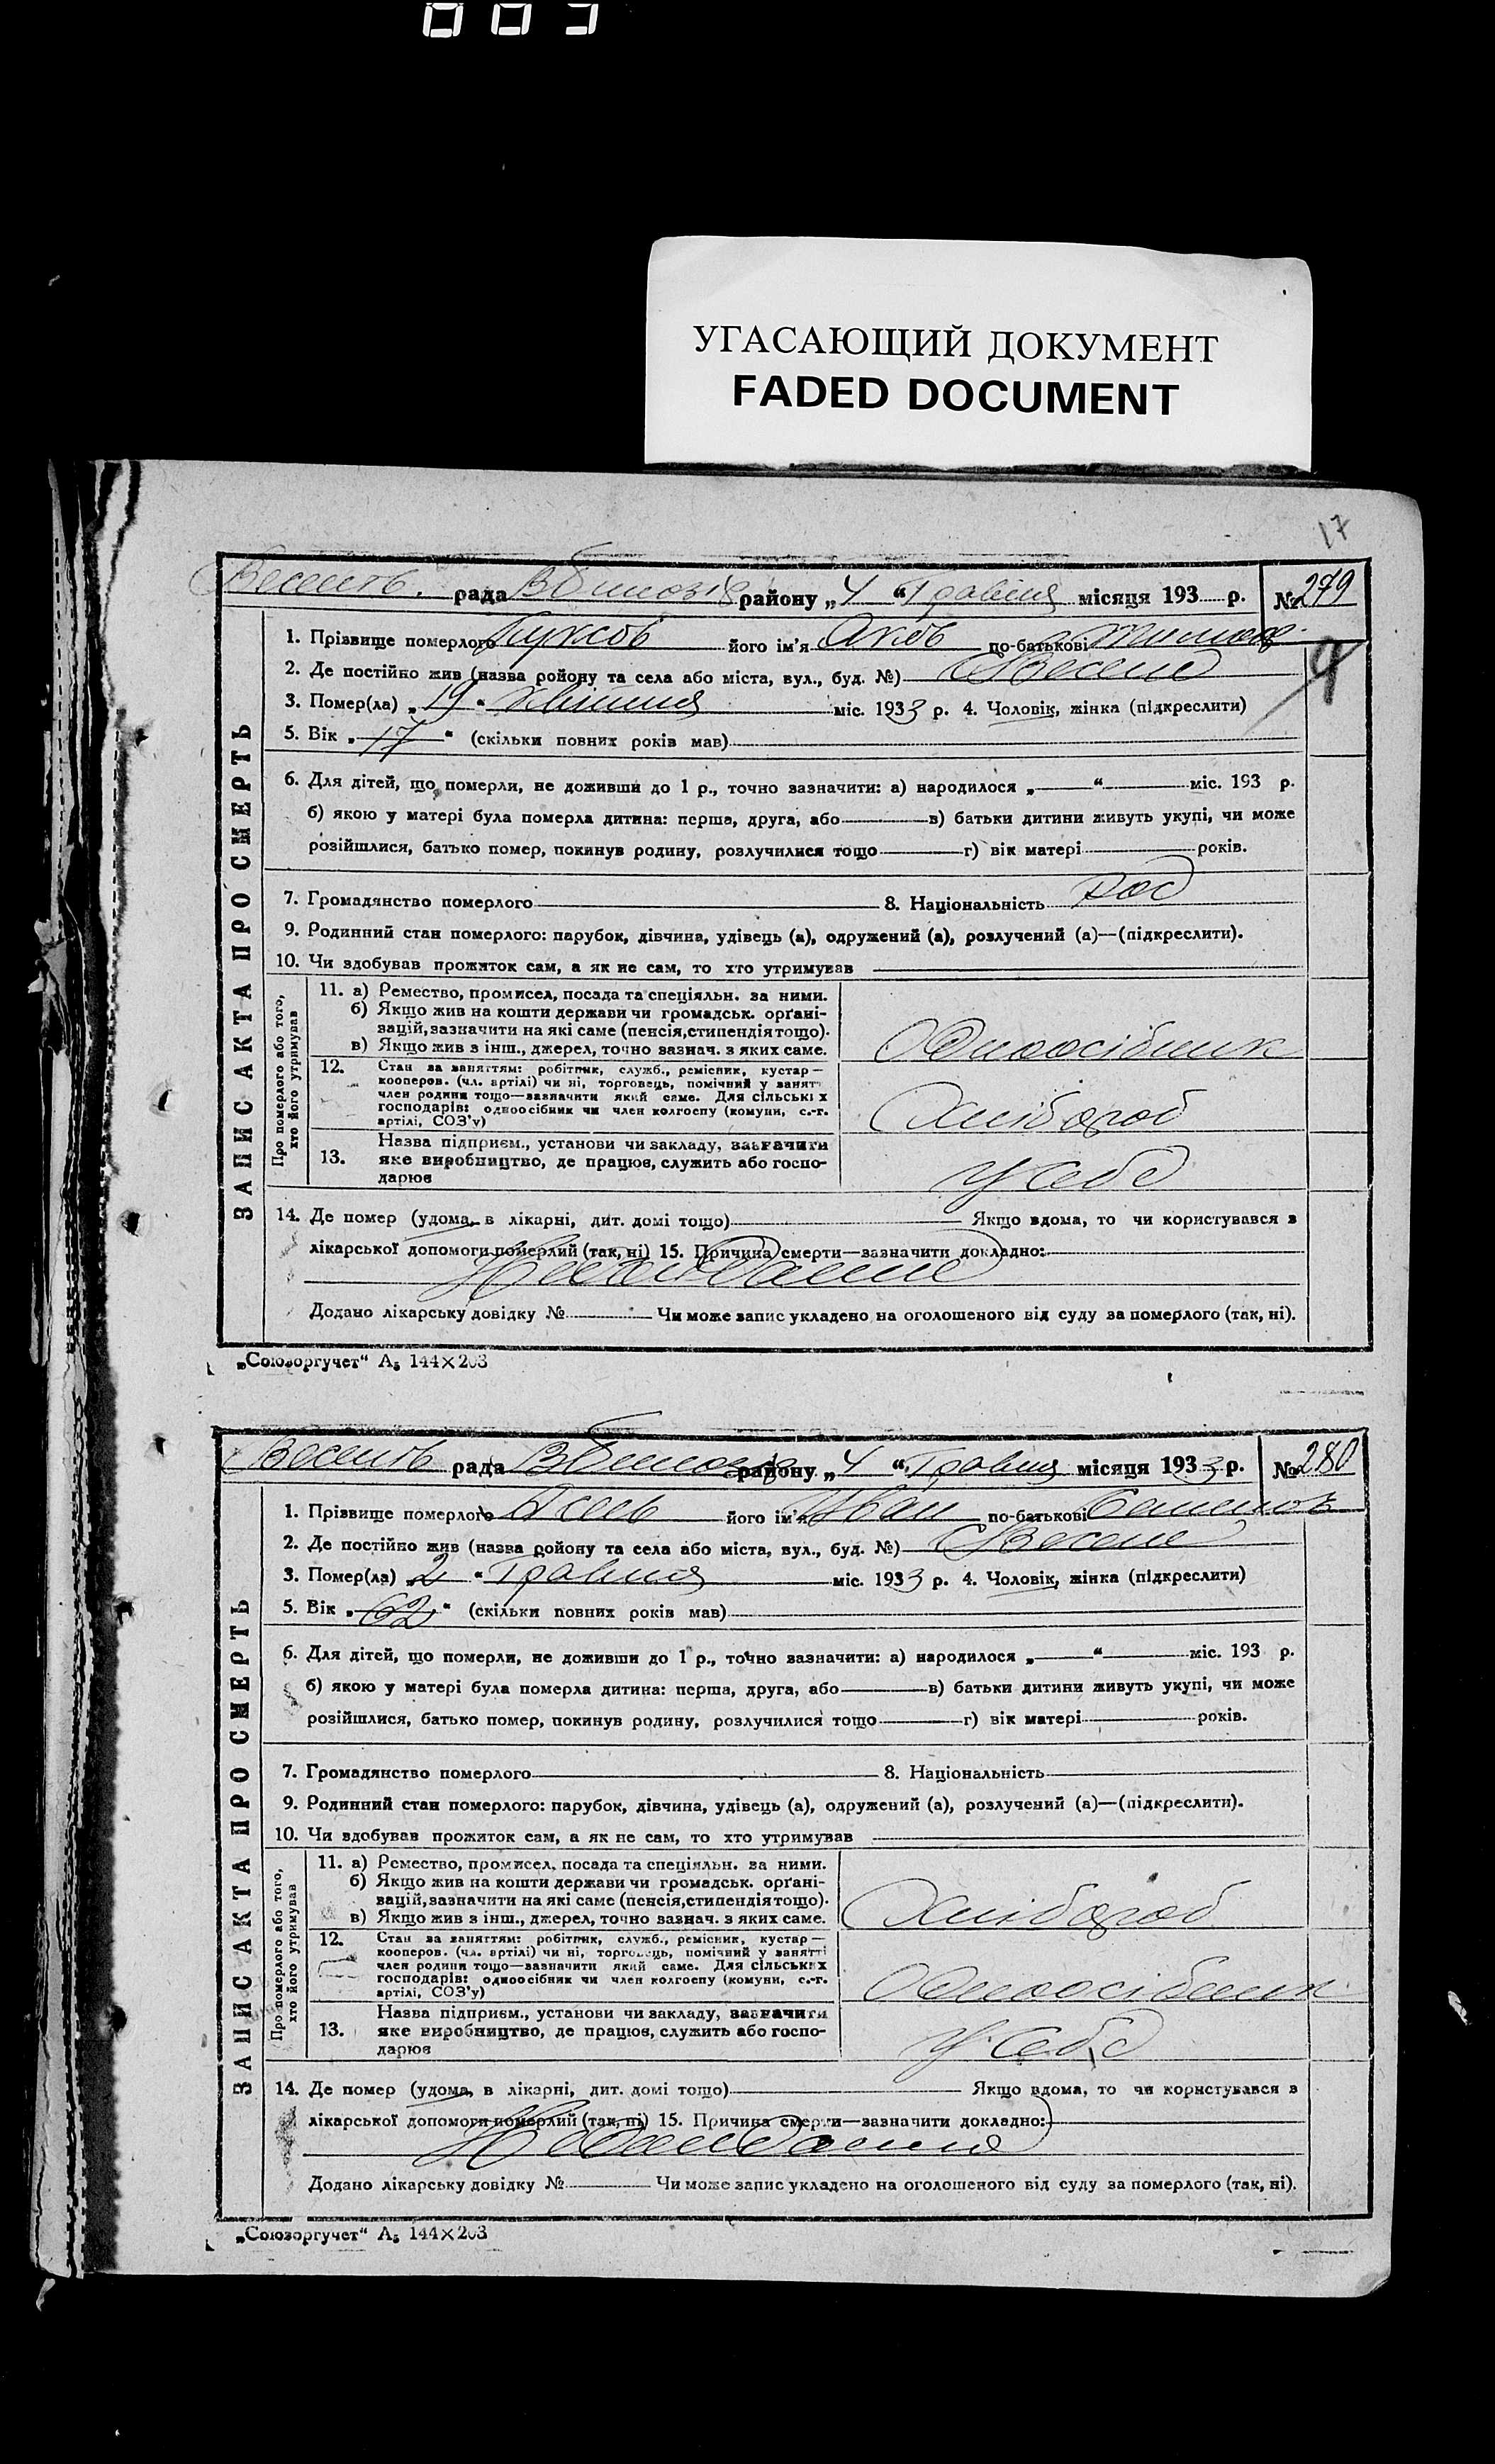 003
УГАСАЮЩИЙ ДОКУМЕНТ
FADED DOCUMENT
17
рада району „ 4 “ Травня місяця 193 р. № 279
1. Прізвище померлого його ім'я Яков по-батькові
9
2. Де постійно жив (назва ройону та села або міста, вул., буд. №) с Веселе
3. Помер(ла) „ 19 “ Квітня міс. 1933 р. 4. Чоловік, жінка (підкреслити)
5. Вік „ 17 “ (скільки повних років мав)
6. Для дітей, що померли, не доживши до 1 р., точно зазначити: а) народилося „ “ міс. 193 р.
б) якою у матері була померла дитина: перша, друга, або в) батьки дитини живуть укупі, чи може
розійшлися, батько помер, покинув родину, розлучилися тощо г) вік матері років.
7. Громадянство померлого 8. Національність рос
9. Родинний стан померлого: парубок, дівчина, удівець (а), одружений (а), розлучений (а)—(підкреслити).
10. Чи здобував прожиток сам, а як не сам, то хто утримував
ЗАПИС АКТА ПРО СМЕРТЬ
Про померлого або того, хто його утримував
11. а) Ремество, промисел, посада та спеціяльн. за ними.
б) Якщо жив на кошти держави чи громадськ. орґані-
зацій, зазначити на які саме (пенсія, стипендія тощо).
в) Якщо жив з інш., джерел, точно зазнач. з яких саме.
Одноосібник
12. Стан за заняттям: робітник, служб., ремісник, кустар—
кооперов. (чл. артілі) чи ні, торговець, помічний у занятт
член родини тощо—зазначити який саме. Для сільських
господарів: одноосібник чи член колгоспу (комуни, с.-г.
артілі, СОЗ'у)
Хлібороб
13. Назва підприєм., установи чи закладу, зазначити
яке виробництво, де працює, служить або госпо-
дарює
У себе
14. Де помер (удома, в лікарні, дит. домі тощо) Якщо вдома, то чи користувався з
лікарської допомоги померлий (так, ні) 15. Причина смерти—зазначити докладно:
Додано лікарську довідку № Чи може запис укладено на оголошеного від суду за померлого (так, ні).
„Союзоргучет“ А₅ 144×203
рада району „ 4 “ Травня місяця 1933 р. № 280
1. Прізвище померлого його ім'я Иван по-батькові
2. Де постійно жив (назва ройону та села або міста, вул., буд. №) с Веселе
3. Помер(ла) „ 2 “ Травня міс. 1933 р. 4. Чоловік, жінка (підкреслити)
5. Вік „ 62 “ (скільки повних років мав)
6. Для дітей, що померли, не доживши до 1 р., точно зазначити: а) народилося „ “ міс. 193 р.
б) якою у матері була померла дитина: перша, друга, або в) батьки дитини живуть укупі, чи може
розійшлися, батько помер, покинув родину, розлучилися тощо г) вік матері років.
7. Громадянство померлого 8. Національність
9. Родинний стан померлого: парубок, дівчина, удівець (а), одружений (а), розлучений (а)—(підкреслити).
10. Чи здобував прожиток сам, а як не сам, то хто утримував
ЗАПИС АКТА ПРО СМЕРТЬ
Про померлого або того, хто його утримував
11. а) Ремество, промисел, посада та спеціяльн. за ними.
б) Якщо жив на кошти держави чи громадськ. орґані-
зацій, зазначити на які саме (пенсія, стипендія тощо).
в) Якщо жив з інш., джерел, точно зазнач. з яких саме.
Хлібороб
12. Стан за заняттям: робітник, служб., ремісник, кустар—
кооперов. (чл. артілі) чи ні, торговець, помічний у занятті
член родини тощо—зазначити який саме. Для сільських
господарів: одноосібник чи член колгоспу (комуни, с.-г.
артілі, СОЗ'у)
Одноосібник
13. Назва підприєм., установи чи закладу, зазначити
яке виробництво, де працює, служить або госпо-
дарює
У себе
14. Де помер (удома, в лікарні, дит. домі тощо) Якщо вдома, то чи користувався з
лікарської допомоги померлий (так, ні) 15. Причина смерти—зазначити докладно:
Додано лікарську довідку № Чи може запис укладено на оголошеного від суду за померлого (так, ні).
„Союзоргучет“ А₅ 144×203